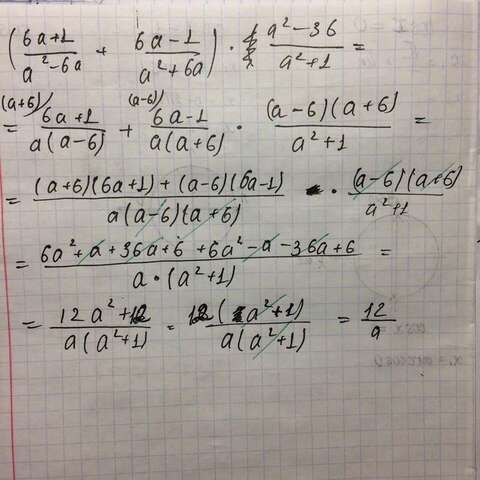 (6a+1/a²-6a + 6a-1/a²+6a) · a²-36/a²+1 =
= (a+6)/ 6a+1/a(a-6) + (a-6)/ 6a-1/a(a+6) · (a-6)(a+6)/a²+1 =
= (a+6)(6a+1)+(a-6)(6a-1)/a(a-6)(a+6) · (a-6)(a+6)/a²+1
= 6a²+a+36a+6+6a²-a-36a+6/a·(a²+1) =
= 12a²+12/a(a²+1) = 12(a²+1)/a(a²+1) = 12/a